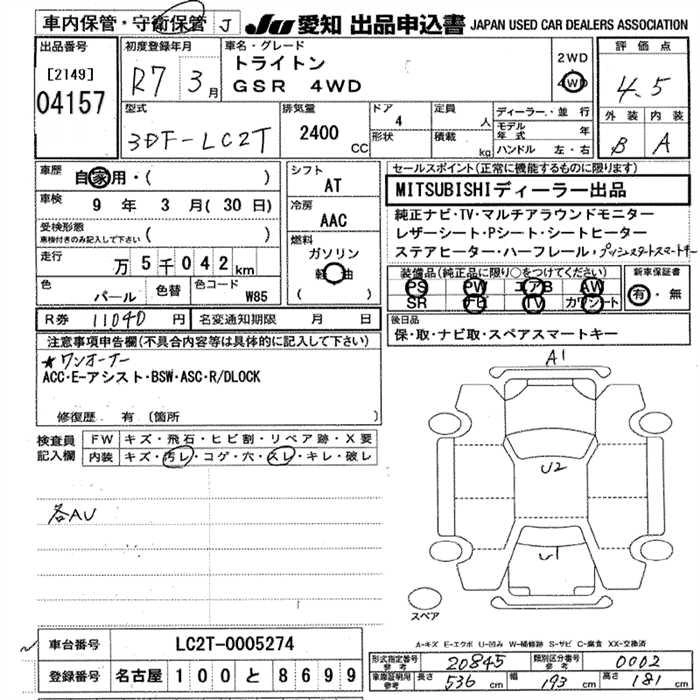 車内保管・守衛保管 J JU 愛知 出品申込書 JAPAN USED CAR DEALERS ASSOCIATION
出品番号 [2149] 04157
初度登録年月 R7 3月
車名・グレード トライトン GSR 4WD
2WD 4WD
評価点 4.5
外装 内装
B A
型式 3DF-LC2T
排気量 2400 CC
ドア 4
形状
定員 人
積載 kg
ディーラー・並行
モデル年式 年
ハンドル 左・右
車歴 自家用・( )
車検 9年 3月(30日)
受検形態 車検付きのみ記入して下さい ( )
走行 万5千042km
色 パール 色替 色コード W85
シフト AT
冷房 AAC
燃料 ガソリン
軽油
( )
セールスポイント(正常に機能するものに限ります)
MITSUBISHIディーラー出品
純正ナビ・TV・マルチアラウンドモニター
レザーシート・Pシート・シートヒーター
ステアヒーター・ハーフレール・プッシュスタートスマートキー
装備品(純正品に限り○をつけてください)
PS PW エアB AW
SR ナビ TV カワシート
新車保証書
有・無
R券 11040 円 名変通知期限 月 日
後日品
保・取・ナビ取・スペアスマートキー
注意事項申告欄(不具合内容等は具体的に記入して下さい)
★ワンオーナー
ACC・E-アシスト・BSW・ASC・R/DLOCK
修復歴 有 (箇所
検査員記入欄
FW キズ・飛石・ヒビ割・リペア跡・X要
内装 キズ・汚レ・コゲ・穴・スレ・キレ・破レ
各AU
A1
U2
U1
スペア
A-キズ E-エクボ U-凹み W-補修跡 S-サビ C-腐食 XX-交換済
車台番号 LC2T-0005274
登録番号 名古屋 100 と 8699
形式指定番号 参考 20845 類別区分番号 参考 0002
車庫証明用 参考 長さ 536 cm 幅 193 cm 高さ 181 cm